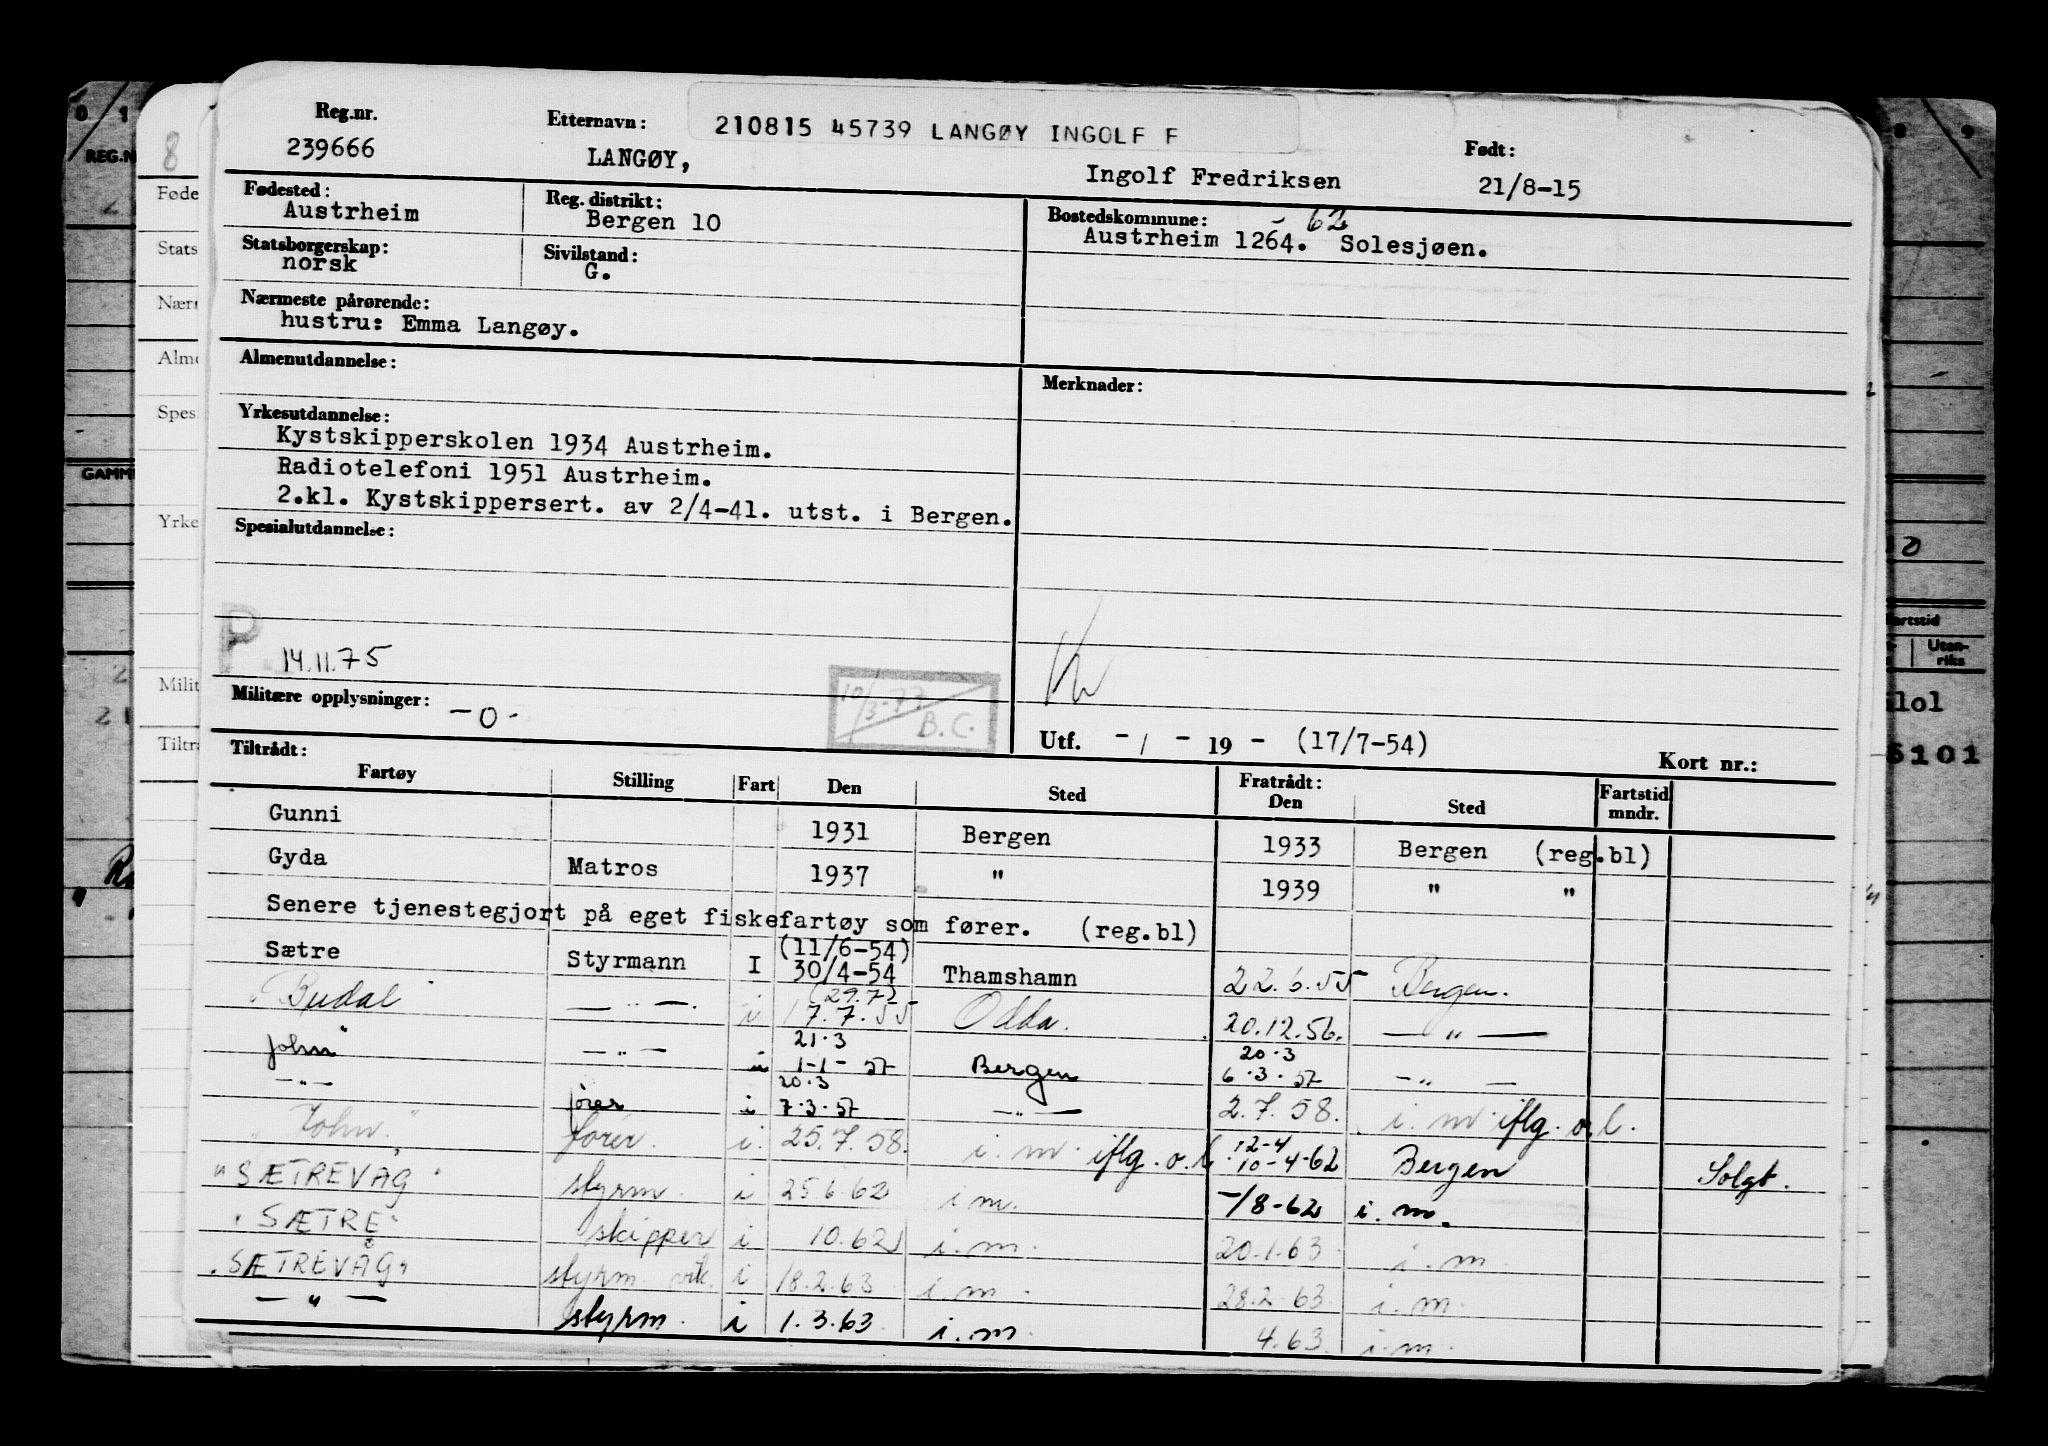 Reg.nr. Etternavn: 210815 45739 LANGØY INGOLF F Født:
239666 LANGØY, Ingolf Fredriksen 21/8-15
Fødested: Reg. distrikt: Bostedskommune: - 62
Austrheim Bergen 10 Austrheim 1264. Solesjøen.
Statsborgerskap: Sivilstand:
norsk G.
Nærmeste pårørende:
hustru: Emma Langøy.
Almenutdannelse: Merknader:
Yrkesutdannelse:
Kystskipperskolen 1934 Austrheim.
Radiotelefoni 1951 Austrheim.
2.kl. Kystskippersert. av 2/4-41. utst. i Bergen.
Spesialutdannelse:
P.
14.11.75
Militære opplysninger: -0-
10/3-77 B.C.
Utf. - / - 19 - (17/7-54) Kort nr.:
Tiltrådt: Fratrådt:
Fartøy Stilling Fart Den Sted Den Sted Fartstid mndr.
Gunni 1931 Bergen 1933 Bergen (reg.bl)
Gyda Matros 1937 " 1939 " "
Senere tjenestegjort på eget fiskefartøy som fører. (reg.bl)
(11/6-54)
Sætre Styrmann I 30/4-54 Thamshamn 22.6.55 Bergen.
(29.7)
Budal — " — i 17.7.55 Odda. 20.12.56. — " —
21.3 20.3
John" — " — i 1-1-57 Bergen 6.3.57 — " —
20.3
— " — fører i 7.3.57 — " — 2.7.58. i.m. iflg. o.l.
12-4
"John." fører. i. 25.7.58. i.m. iflg. o.l. 10-4-62 Bergen Solgt.
"SÆTREVÅG" styrm. i 25.6.62 i m. -/8-62 i.m.
"SÆTRE" skipper i 10.62 i.m. 20.1.63 i.m.
"SÆTREVÅG" styrm. vik. i 18.2.63 i.m. 28.2.63. i.m.
— " — styrm. i 1.3.63 i.m. 4.63. i.m.
8
Føde
Stats
Nærr
Alme
Spes
Yrke
Milit
Tiltrå
0 1
REG.N
GAMM
8 9
artstid
Uten-riks
lol
5101